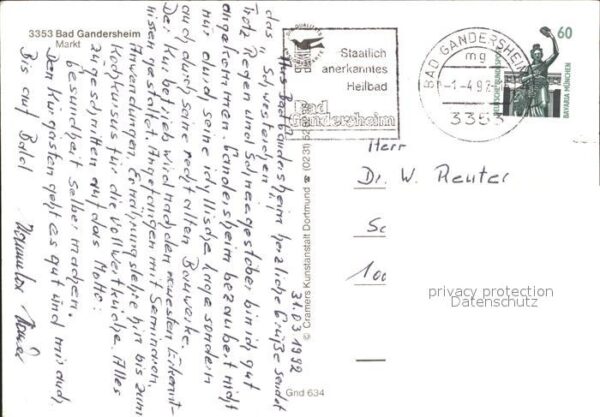 3353 Bad Gandersheim
Markt
Aus Bad Gandersheim herzliche Grüße sendet
das "Schwesterchen"!
Trotz Regen und Schneegestöber bin ich gut
angekommen. Gandersheim bezaubert nicht
nur durch seine idyllische Lage sondern
auch durch seine recht alten Bauwerke.
Der Kurbetrieb wird nach den neuesten Erkennt-
nissen gestaltet. Angefangen mit Seminaren,
Anwendungen, Ernährungslehre hin bis zum
Kochkursus für die Vollwertküche. Alles
zugeschnitten auf das Motto:
Gesundheit selber machen.
Den Kurgästen geht es gut und mir auch.
Bis auf Bald
31.03.1992
© Cramers Kunstanstalt Dortmund ☎ (0231) 52
Gnd 634
Staatlich
anerkanntes
Heilbad
Bad
Gandersheim
BAD GANDERSHEIM
mg
-1-4.92-
3353
60
DEUTSCHE BUNDESPOST
BAVARIA MÜNCHEN
Herr
Dr. W. Reuter
privacy protection
Datenschutz